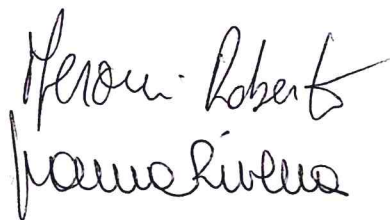 Meroni Roberto
Ivanna Rivena